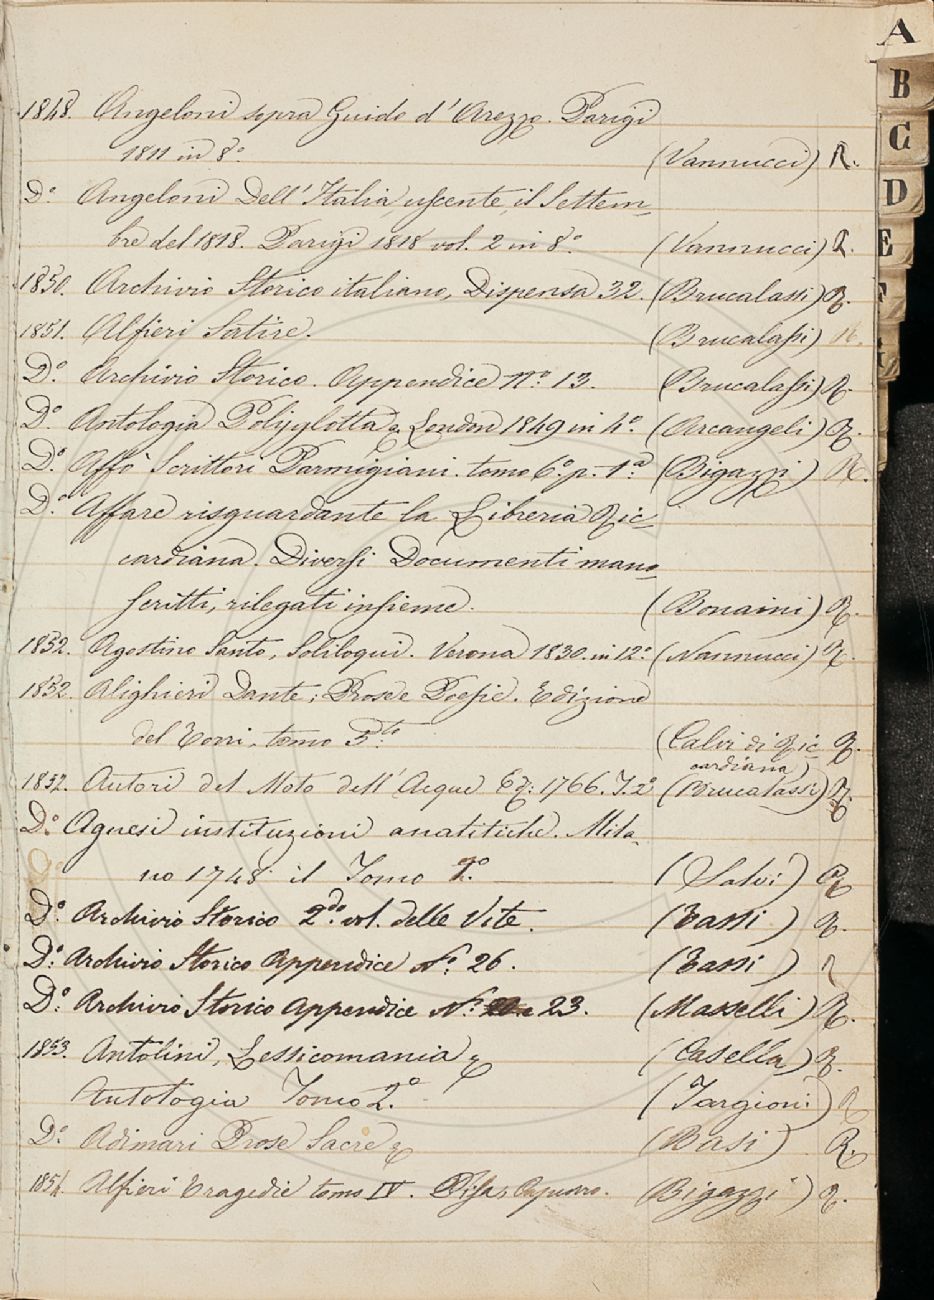 A
B
C
D
E
F
1848. Angeloni sopra Guido d'Arezzo. Parigi
1811 in 8.° (Vannucci) R.
D.° Angeloni Dell'Italia uscente il Settem-
bre del 1818. Parigi 1818 vol. 2 in 8.° (Vannucci) R.
1850. Archivio Storico italiano, Dispensa 32. (Brucalassi) R.
1851. Alfieri Satire. (Brucalassi) R.
D.° Archivio Storico. Appendice N.° 13. (Brucalassi) R.
D.° Antologia Polyglotta London 1849 in 4.° (Arcangeli) R.
D.° Affò Scrittori Parmigiani. tomo 6.° p. 1.ª (Bigazzi) R.
D.° Affare risguardante la Libreria Ric-
cardiana. Diversi Documenti mano-
scritti, rilegati insieme. (Bonaini) R.
1852. Agostino Santo, Soliloqui. Verona 1830. in 12.° (Nannucci) R.
1852. Alighieri Dante; Prose e Poesie. Edizione
del Torri, tomo 5.to (Calvi di Ric- R.
cardiana)
1852. Autori del Moto dell'Acque Ez: 1766. T. 2.° (Brucalassi) R.
D.° Agnesi instituzioni analitiche. Mila-
no 1748 il Tomo 2.° (Salvi) R.
D.° Archivio Storico 2.do vol. delle Vite. (Tassi) R.
D.° Archivio Storico Appendice N.° 26. (Tassi) R
D.° Archivio Storico Appendice N.° 23. (Masselli) R.
1853. Antolini, Lessicomania (Casella) R.
Antologia Tomo 2.° (Targioni) R
D.° Adimari Prose Sacre (Basi) R.
1854. Alfieri Tragedie tomo IV. (Bigazzi) R.